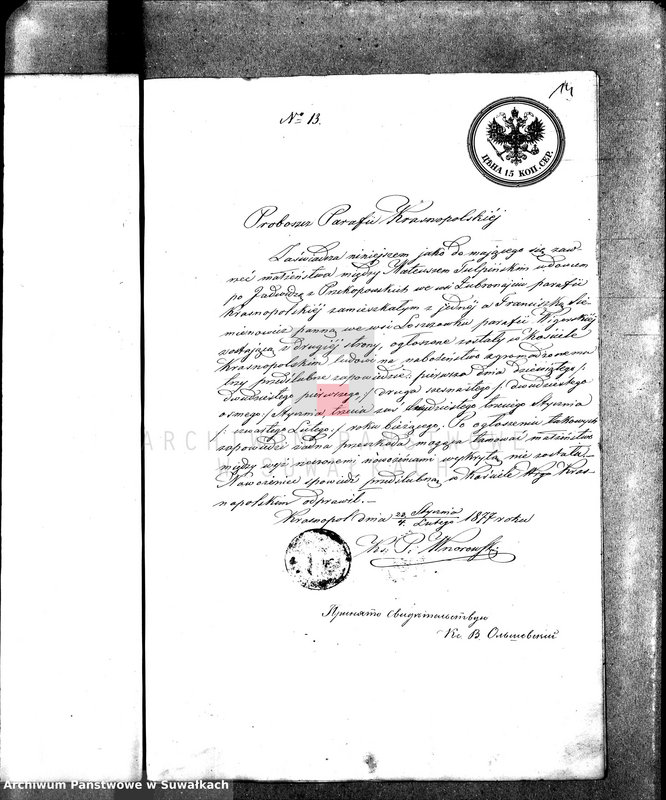 14
№ 13.
ЦѢНА 15 КОП. СЕР.
Proboszcz Parafii Krasnopolskiéj
Zaświadcza niniejszem jako do mającego się zaw-
rzeć małżeństwa między Mateuszem Sulpińskim wdowcem
po Jadwidze z Przekopowskich we wsi Żubronajciu parafii
Krasnopolskiéj zamieszkałym z jednéj a Franciszką Si-
mienowicz panną we wsi Leszczewku parafii Wigerskiéj
zostającą z drugiéj strony, ogłoszone zostały w kościele
Krasnopolskim ludowi na nabożeństwo zgromadzonemu
trzy przedślubne zapowiedzie: pierwsza dnia dziewiątego /:
dwudziestego pierwszego :/ druga szesnastego /: dwudziestego
ósmego :/ Stycznia, trzecia zaś dwudziestego trzeciego Stycznia
/: czwartego Lutego :/ roku bieżącego. Po ogłoszeniu takowych
zapowiedzi żadna przeszkoda mogąca tamować małżeństwo
między wyż rzeczonemi nowożeńcami wykrytą nie została.
Nowożeniec spowiedź przedślubną w Kościele Kras-
nopolskim odprawił. —
Krasnopol dnia 23 Stycznia / 4 Lutego 1877 roku
Ks. P. Wnorowski
Archiwum Państwowe
w Suwałkach
Принято свидѣтельствую
Кс. В. Ольшевскій
Archiwum Państwowe w Suwałkach